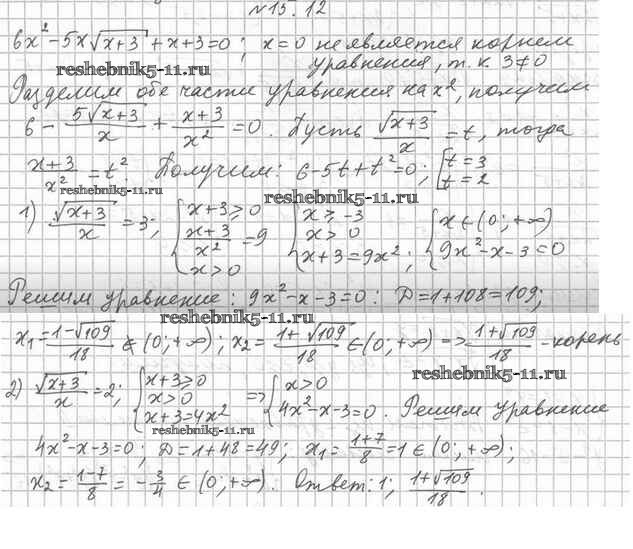 №15.12
6x² - 5x√(x+3) + x + 3 = 0; x = 0 не является корнем
уравнения, т.к 3≠0
reshebnik5-11.ru
Разделим обе части уравнения на x², получим
6 - 5√(x+3)/x + (x+3)/x² = 0. Пусть √(x+3)/x = t, тогда
(x+3)/x² = t². Получим: 6-5t+t²=0; [t=3 t=2
reshebnik5-11.ru
reshebnik5-11.ru
1) √(x+3)/x = 3; {x+3≥0 (x+3)/x² = 9 x>0 {x≥-3 x>0 x+3=9x²; {x∈(0;+∞) 9x²-x-3=0
Решим уравнение: 9x²-x-3=0: D=1+108=109;
reshebnik5-11.ru
x₁ = (1-√109)/18 ∉ (0;+∞); x₂ = (1+√109)/18 ∈ (0;+∞) => (1+√109)/18 - корень
reshebnik5-11.ru
2) √(x+3)/x = 2; {x+3≥0 x>0 x+3=4x² => {x>0 4x²-x-3=0. Решим уравнение
reshebnik5-11.ru
4x²-x-3=0; D=1+48=49; x₁ = (1+7)/8 = 1 ∈ (0;+∞);
x₂ = (1-7)/8 = -3/4 ∈ (0;+∞). Ответ: 1; (1+√109)/18.